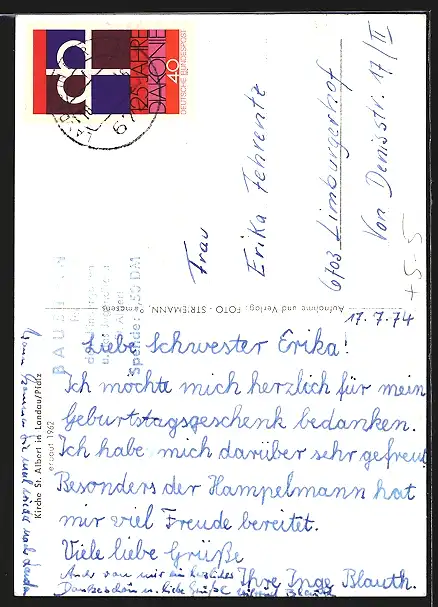 125 JAHRE
DIAKONIE
40
DEUTSCHE BUNDESPOST
Frau
Erika Fehrentz
6703 Limburgerhof
Von Denisstr. 17/II
+ 5-5
BAUSTEIN
Spende: 1,50 DM
Aufnahme und Verlag: FOTO - STRIEMANN, Pirmasens
Kirche St. Albert in Landau/Pfalz
erbaut 1962
17.7.74
Liebe Schwester Erika!
Ich möchte mich herzlich für mein
Geburtstagsgeschenk bedanken.
Ich habe mich darüber sehr gefreut.
Besonders der Hampelmann hat
mir viel Freude bereitet.
Viele liebe Grüße
Ihre Inge Blauth.
Auch von mir ein herzliches
Dankeschön u. liebe Grüße Blauth
Wann kommen Sie mal wieder nach Landau